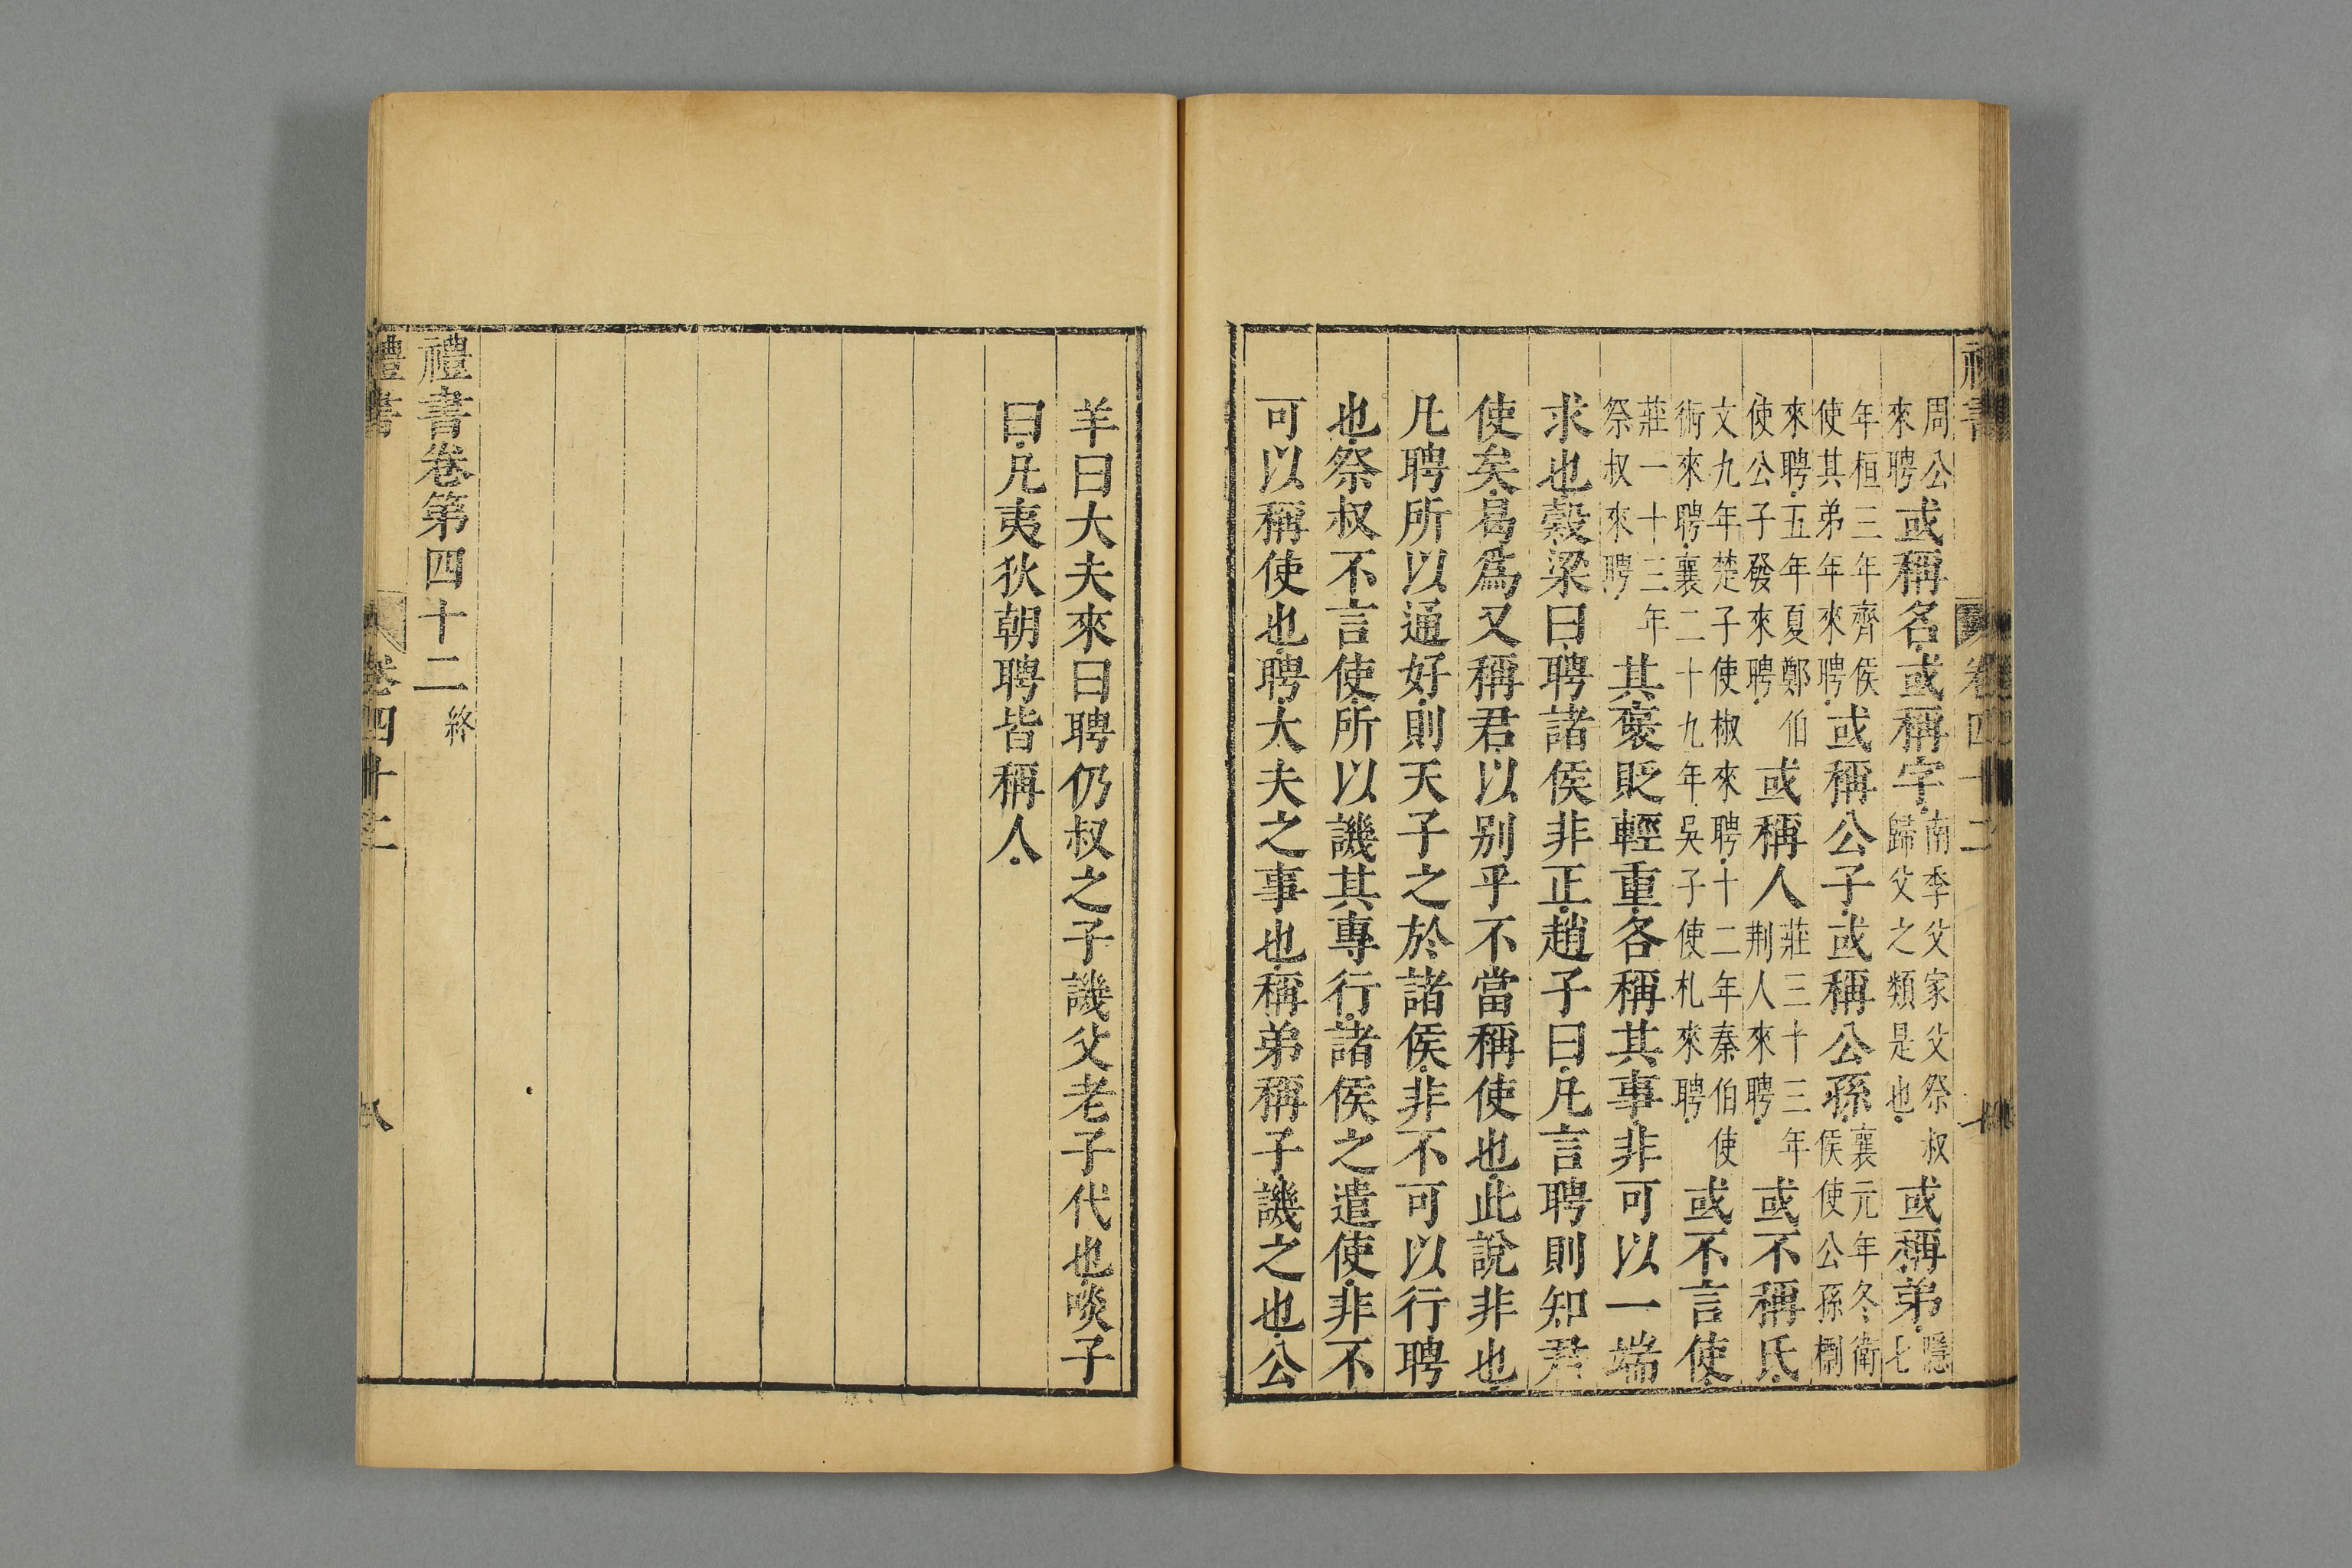 周公來聘或稱名或稱字南季父家父祭叔歸父之類是也或稱弟隱七
年桓三年齊侯使其弟年來聘或稱公子或稱公孫襄元年冬衛侯使公孫剽
來聘五年夏鄭伯使公子發來聘或稱人莊三十三年荆人來聘或不稱氏
文九年楚子使椒來聘十二年秦伯使術來聘襄二十九年吳子使札來聘或不言使
莊一十三年祭叔來聘其褒貶輕重各稱其事非可以一端
求也穀梁曰聘諸侯非正趙子曰凡言聘則知君
使矣曷爲又稱君以别乎不當稱使也此說非也
凡聘所以通好則天子之於諸侯非不可以行聘
也祭叔不言使所以譏其專行諸侯之遣使非不
可以稱使也聘大夫之事也稱弟稱子譏之也公
羊曰大夫來曰聘仍叔之子譏父老子代也啖子
曰凡夷狄朝聘皆稱人
禮書卷第四十二終
禮書 卷四十二 八